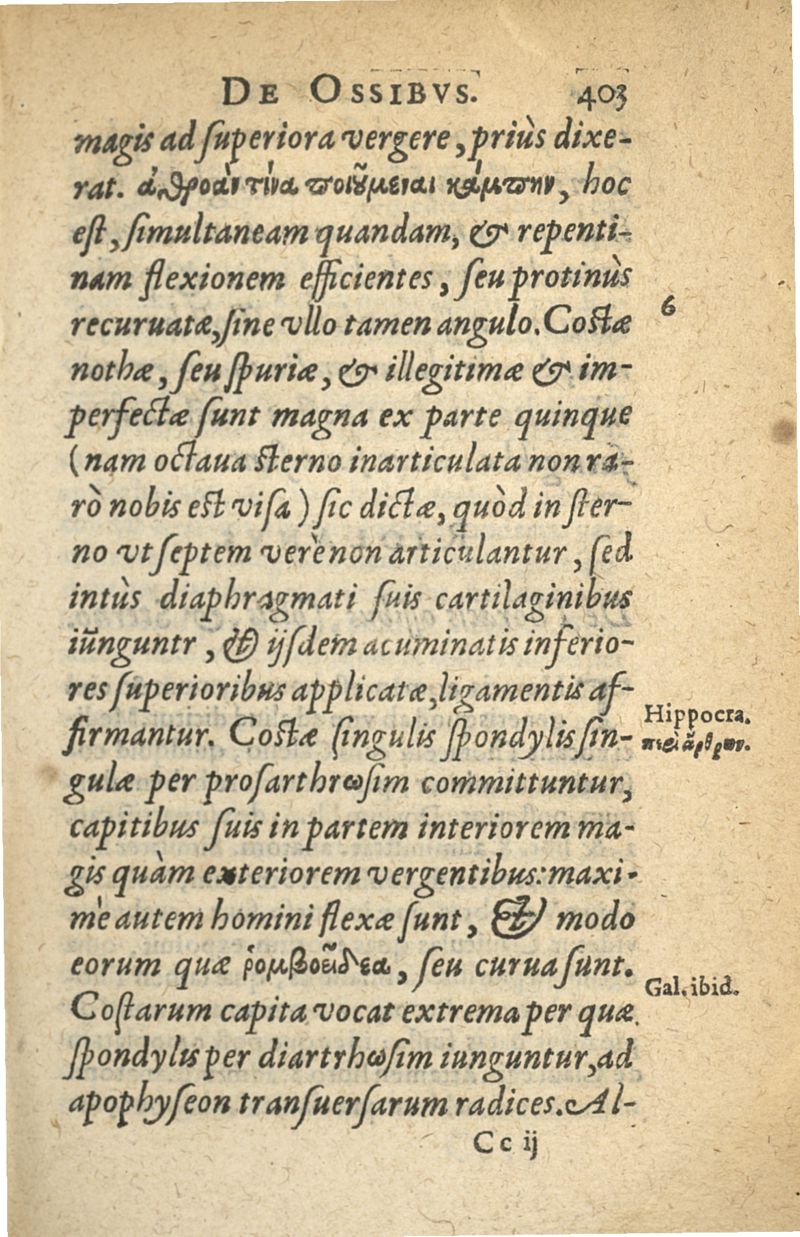 DE OSSIBVS. 403
magis ad superiora vergere, priùs dixe-
rat. ἀθροάν τινα ποιούμεναι κάμπην, hoc
est, simultaneam quandam, & repenti-
nam flexionem efficientes, seu protinùs
recuruatæ, sine vllo tamen angulo. Costæ
6
nothæ, seu spuriæ, & illegitimæ & im-
perfectæ sunt magna ex parte quinque
(nam octaua sterno inarticulata non ra-
rò nobis est visa) sic dictæ, quòd in ster-
no vt septem verè non articulantur, sed
intùs diaphragmati suis cartilaginibus
iũnguntr, & ijsdem acuminatis inferio-
res superioribus applicatæ, ligamentis af-
firmantur. Costæ singulis spondylis sin-
Hippocra.
περὶ ἄρθρων.
gulæ per prosarthrωsim committuntur,
capitibus suis in partem interiorem ma-
gis quàm exteriorem vergentibus: maxi-
mè autem homini flexæ sunt, & modo
eorum quæ ῥομβοειδέα, seu curua sunt.
Gal. ibid.
Costarum capita vocat extrema per quæ
spondylis per diartrhωsim iunguntur, ad
apophyseon transuersarum radices. Al-
Cc ij